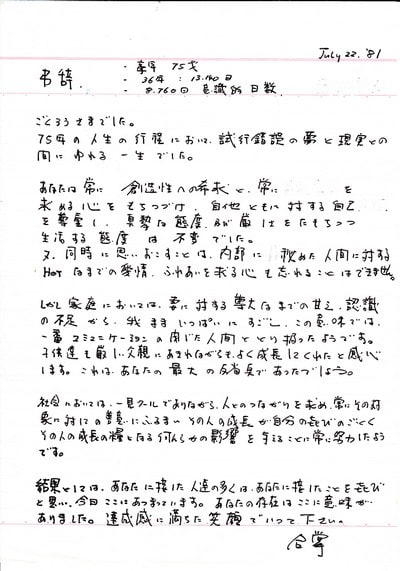 July 22. '81
弔辞
・享年 75才
・36年 : 13.140日
・8.760日 意識的日数
ごくろうさまでした。
75年の人生の行程において、試行錯誤の夢と現実との
間にゆれる一生でした。
あなたは常に 創造性への希求と、常に を
求める心をもちつづけ、自他ともに対する自己
を尊重し、真摯な態度、が厳しさをたもちつつ
生活する態度は 不変でした。
又、同時に思いおこすことは、内部に秘めた人間に対する
Hotなまでの愛情、ふれあいを求る心も忘れることはできません。
しかし家庭においては、妻に対する尊大なまでの甘え、認識
の不足から、我ままいっぱいにすごし、この意味では、
一番コミュニケーションの閉じた人間ととり扱ったようです。
子供達も厳しい父親にあきれながらも、よく成長してくれたと感心
します。これは、あなたの最大の反省点であったでしょう。
社会においては、一見クールでありながら、人とのつながりを求め、常にその対
象に対して にふるまい その人の成長が自分の喜びのごとく
その人の成長の糧となる何んらかの影響を与えることに常に努力したよう
です。
結果としては、あなたに接した人達の多くは、あなたに接したことを喜び
と思い、今日ここにあつまっています。あなたの存在はここに意味が
ありました。達成感に満ちた笑顔でいって下さい。